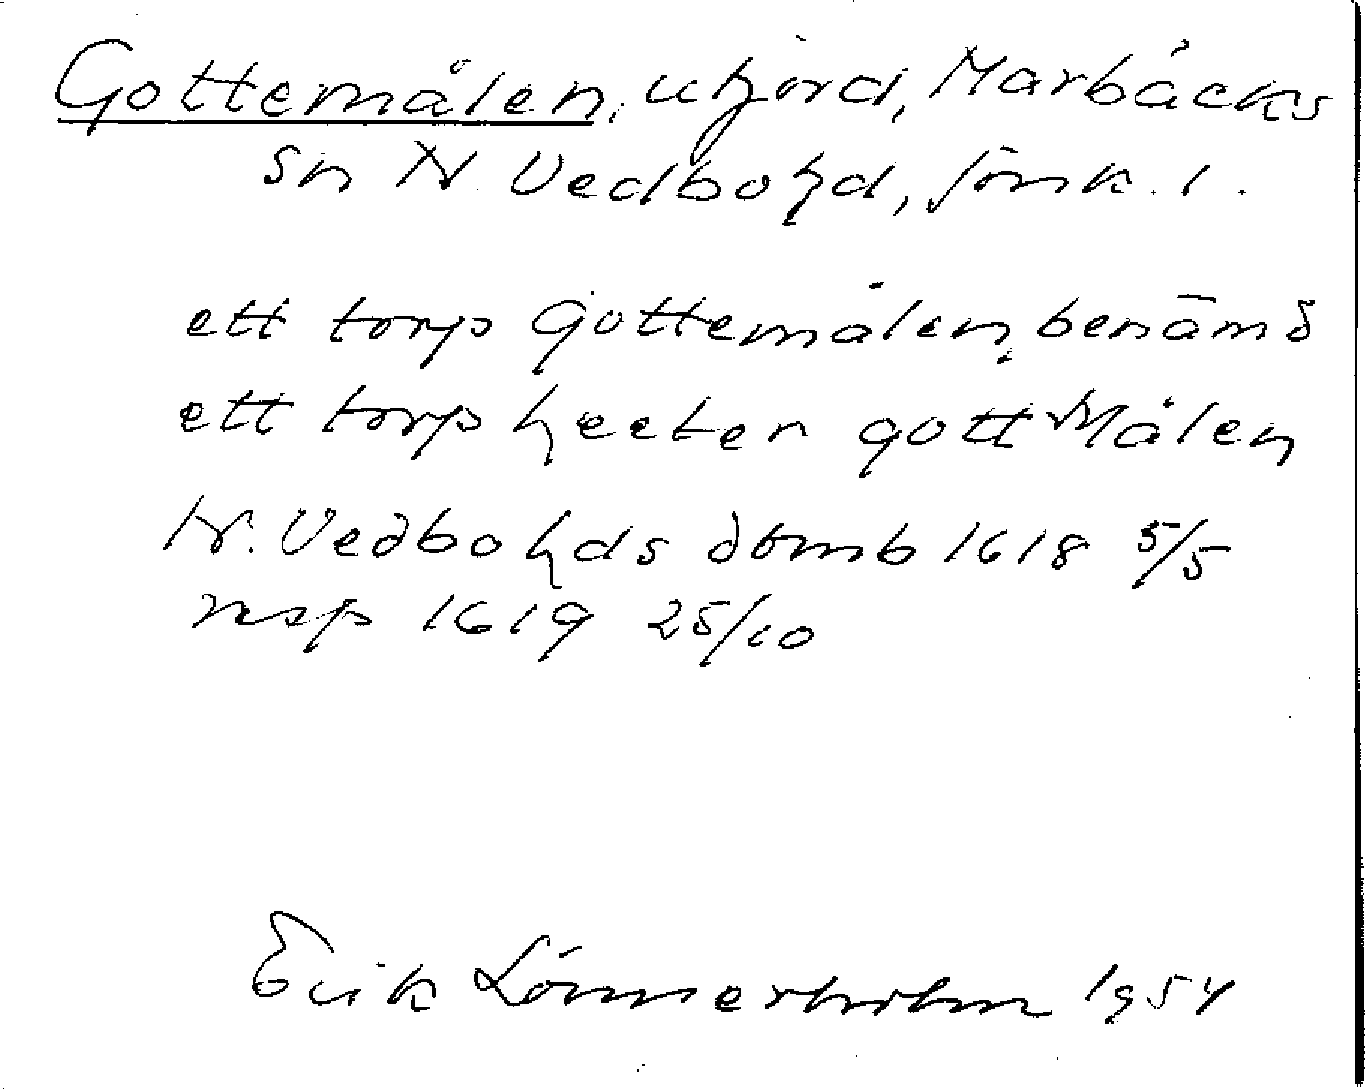 Gottemålen, utjord, Marbäcks
sn N. Vedbo hd, Jönk. l.
ett torp Gottemålen, benämd
ett torp heeter gott Målen
N. Vedbo hds domb 1618 5/5
resp 1619 25/10
Erik Lönnerholm 1954